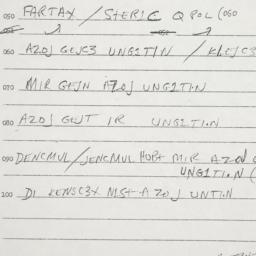 050 FARTAX / STERIC Q POL (050
060 AZOJ GEJC3 UNG1TIN /
070 MIR GEJN AZOJ UNG1TIN
080 AZOJ GEJT IR UNG1TIN
090 DENCMUL/JENCMUL MIR AZOJ
UNG1TIN (
100 DI AZOJ UNTIN